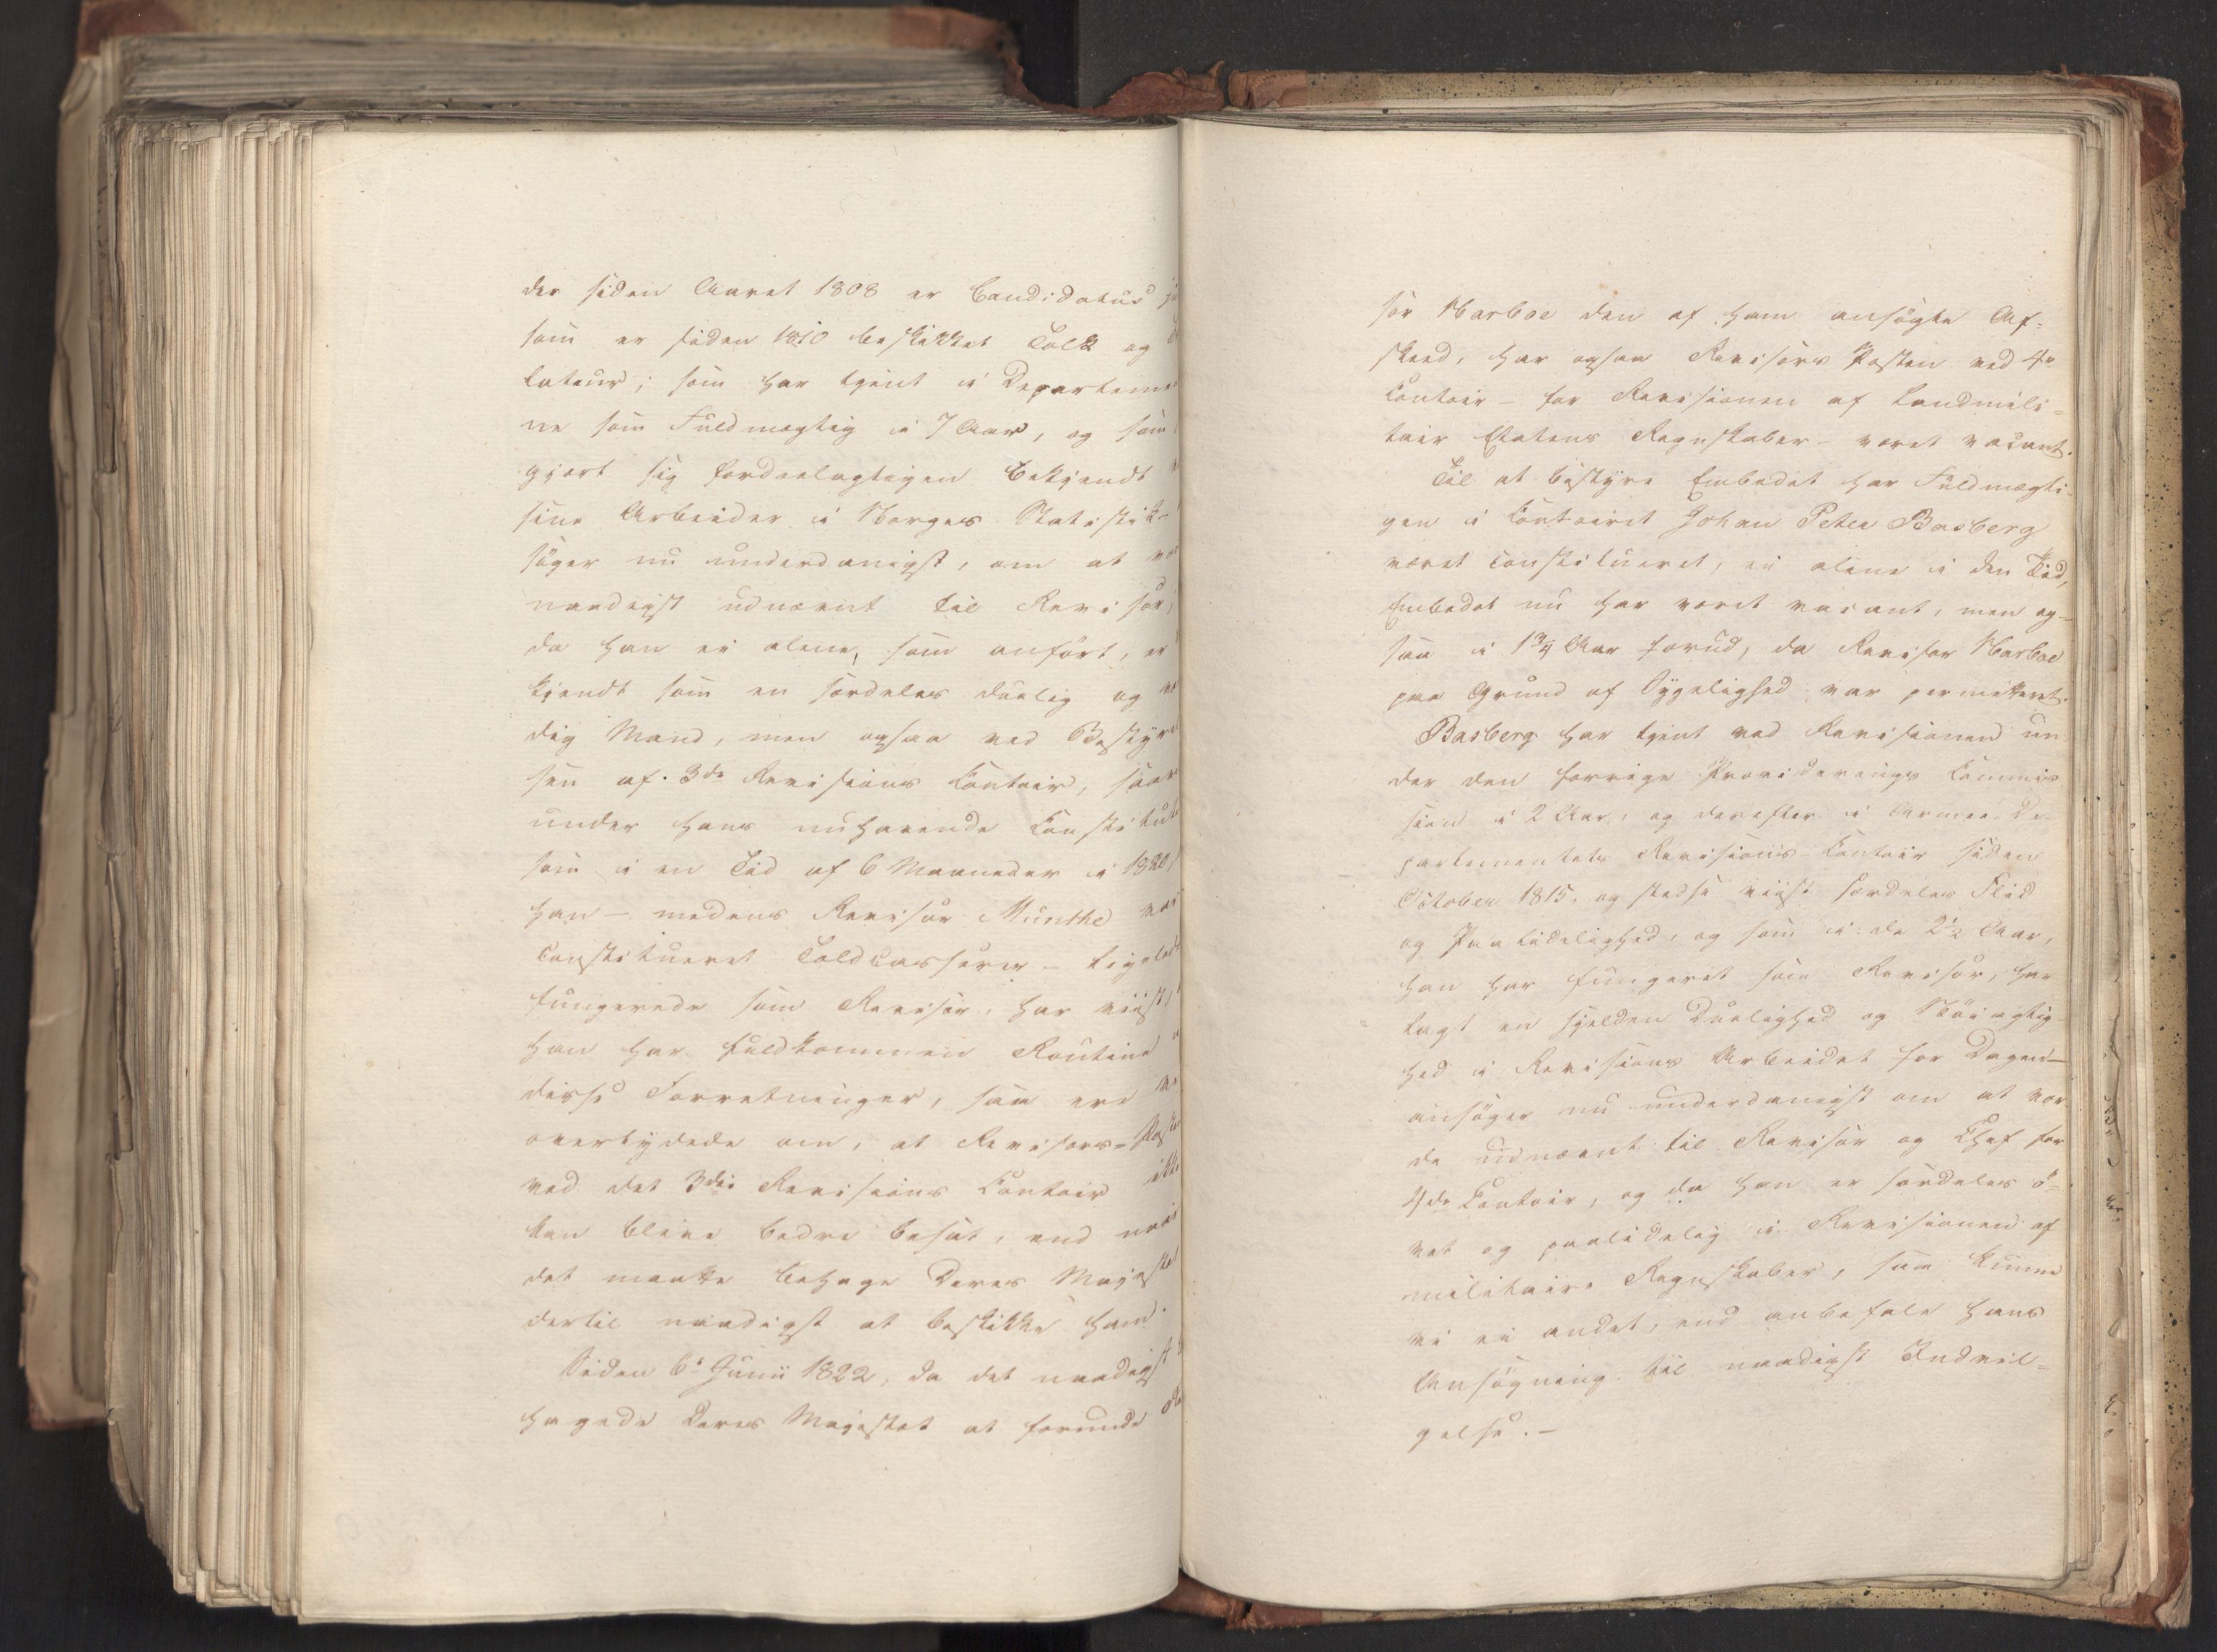 der siden Aaret 1808 er Candidatus
som er siden 1810 beskikket Tolk og
lateur; som har tjent i Departeme
ne som Fuldmægtig i 7 Aar, og som
gjort sig fordeelagtigen bekjendt
sine Arbeider i Norges Statistik-
søger nu underdanigst, om at
naadigst udnævnt til Revisor;
da han ei alene, som anført, er
kjendt som en særdeles duelig og
dig Mand, men ogsaa ved Bestyre
sen af 3de Revisions Contoir, saa
under hans nuhavende Constitut
som i en Tid af 6 Maaneder i 1820,
han – medens Revisor Munthe var
constitueret Toldcasserer – ligeled
fungerede som Revisor, har viist,
han har fuldkommen Routine
disse Forretninger, saa ere
overtydede om, at Revisors-Post
ved det 3die Revisions Contoir ikke
kan blive bedre besat, end naar
det maatte behage Deres Majestæt
dertil naadigst at beskikke ham.
Siden 6te Junii 1822, da det naadigst
hagede Deres Majestæt at forunde
sor Narboe den af ham ansøgte Af=
skeed, har ogsaa Revisors Posten ved 4e
Contoir – for Revisionen af Landmili=
tair Etatens Regnskaber – været vacant.
Til at bestyre Embedet har Fuldmægti-
gen i Contoiret Johan Peter Basberg
været constitueret, ei alene i den Tid,
Embedet nu har været vacant, men og-
saa i 1¾ Aar forud, da Revisor Narboe
paa Grund af Sygelighed var permitteret.
Basberg har tjent ved Revisionen un
der den forrige Provideerings Commis
sion i 2 Aar, og derefter i Armee-De-
partementets Revisions Contoir siden
October 1815, og stedse viist særdeles Flid
og Paalidelighed, og som i de 2½ Aar,
han har fungeret som Revisor, har
lagt en sjelden Duelighed og Nöiagtig-
hed i Revisions Arbeidet for Dagen –
ansøger nu underdanigst om at vor-
de udnævnt til Revisor og Chef for
4de Contoir, og da han er særdeles ö-
vet og paalidelig i Revisionen af
militaire Regnskaber, saa kunne
vi ei andet, end anbefale hans
Ansøgning til naadigst Indvil=
gelse. –